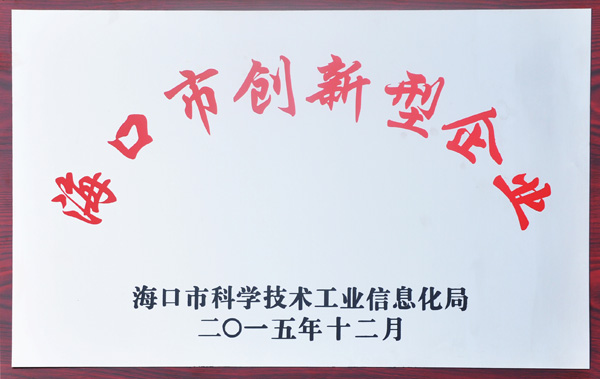 海口市创新型企业
海口市科学技术工业信息化局
二〇一五年十二月